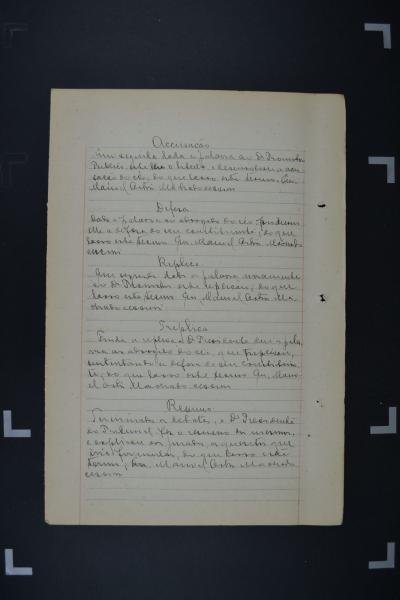 Accusação
Em seguida dada a palavra ao Dr Promotor
Publico, este leu o libello, e desenvolveu a accu
sação do réo, do que lavro este termo. Eu,
Manoel Machado escrevi
Defesa
Dada a palavra ao advogado do réo,
a defesa do seu constituinte; do que
lavro este termo. Eu, Manoel Machado
escrevi
Replica
Em seguida dada a palavra novamente
ao Dr Promotor este replicou; do que
lavro este termo. Eu, Manoel Ma
chado escrevi
Treplica
Finda a replica o Dr Presidente deu a pala
vra ao advogado do réo, que treplicou,
sustentando a defesa do seu constituin
te; do que lavro este termo Eu, Mano
el Machado escrevi
Resumo
Terminados os debates, o Dr Presidente
do Tribunal fez o resumo da mesma,
e explicou aos jurados a questão que
formular, do que lavro este
termo; Eu, Manoel Machado
escrevi